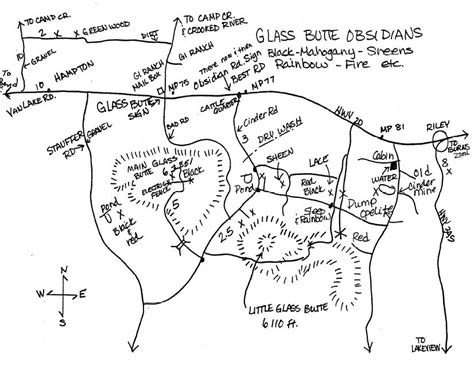 GLASS BUTTE OBSIDIANS
Black-Mahogany-Sheens
Rainbow - Fire etc.
TO CAMP CR.
2 X X GREENWOOD
DIRT
10
GRAVEL
TO CAMP CR.
& CROOKED RIVER
GI RANCH
GI RANCH
MAIL BOX
MP75
There now & then
Obsidian Rd. Sign
BEST RD
MP77
10
HAMPTON
VAN LAKE RD.
GLASS BUTTE
SIGN
CATTLE
GUARD
Cinder Rd
HWY 20
MP 81
RILEY
TO
BURNS
STAUFFER
RD
GRAVEL
BAD RD
3
DRY WASH
MAIN GLASS
BUTTE
ELECTRICAL
FENCE
Black
SHEEN
LACE
Cabin
WATER
Old
Cinder
mine
8
X
HWY 395
Pond
Red
Black
X
Pond
X
Black
&
red
5
2.5
X
Rainbow
Dump
Red
N
W
E
S
LITTLE GLASS BUTTE
6110 ft.
TO
LAKEVIEW